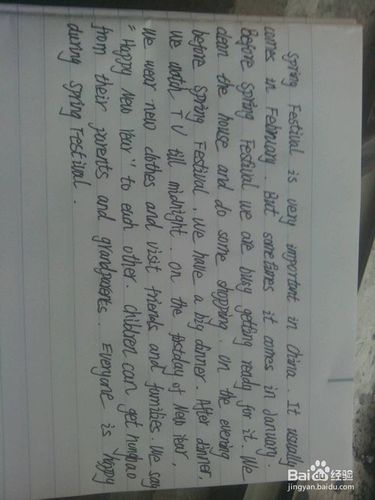 Spring Festival is very important in China. It usually
comes in February. But sometimes it comes in January.
Before Spring Festival we are busy getting ready for it. We
clean the house and do some shopping. On the evening
before Spring Festival, we have a big dinner. After dinner,
we watch TV till midnight. On the firstday of New Year,
we wear new clothes and visit friends and families. We say
"Happy New Year" to each other. Children can get hongbao
from their parents and grandparents. Everyone is happy
during Spring Festival.
Baidu经验
jingyan.baidu.com